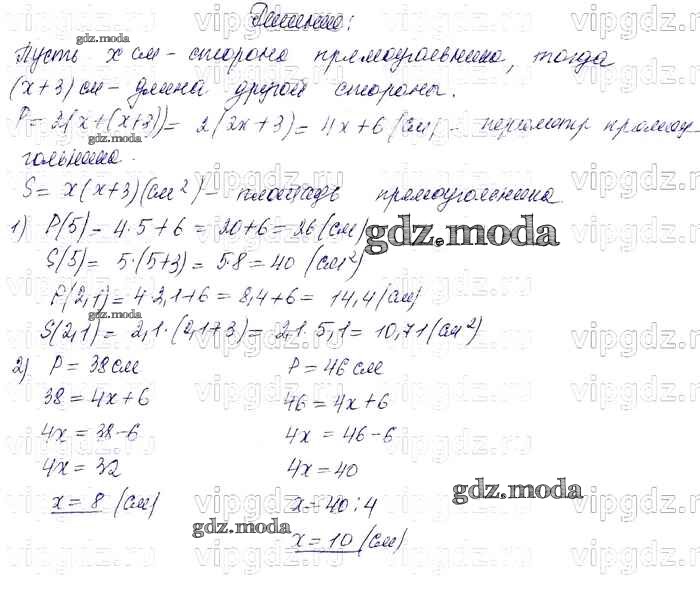 Решение:
Пусть x см – сторона прямоугольника, тогда
(x+3) см – длина другой стороны.
P = 2(x+(x+3)) = 2(2x+3) = 4x+6 (см) – периметр прямоу-
гольника.
S = x(x+3) (см²) – площадь прямоугольника.
1) P(5) = 4·5+6 = 20+6 = 26 (см)
S(5) = 5·(5+3) = 5·8 = 40 (см²)
P(2,1) = 4·2,1+6 = 8,4+6 = 14,4 (см)
S(2,1) = 2,1·(2,1+3) = 2,1·5,1 = 10,71 (см²)
2) P = 38 см
38 = 4x+6
4x = 38-6
4x = 32
x = 8 (см)
P = 46 см
46 = 4x+6
4x = 46-6
4x = 40
x = 40:4
x = 10 (см)
gdz.moda
gdz.moda
gdz.moda
gdz.moda
gdz.moda
gdz.moda
vipgdz.moda